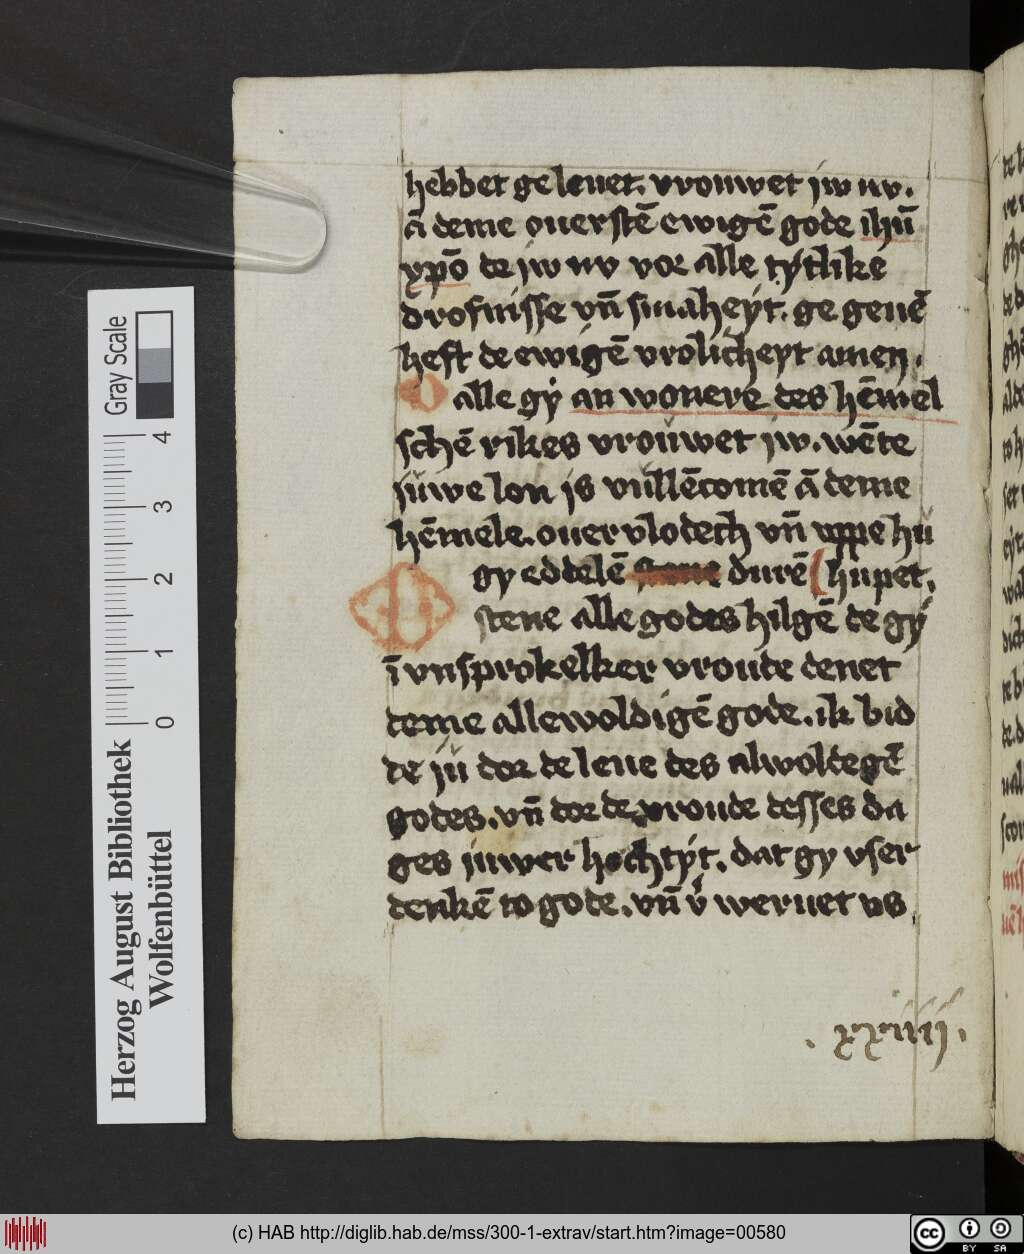 hebbet geleuet. vrouwet iw nv.
ā deme ouerstē ewigē gode ihū
xp̄o de iw nv vor alle tÿtlike
drofnisse vn̄ smaheÿt. ge geuē
heft de ewigē vrolicheyt amen.
O alle gÿ an wonere des hēmel
schē rikes vrouwet iw. wēte
iuwe lon is vullēcomē ā deme
hēmele. ouer vlodech vn̄ vppe hu
O gy eddelē durē hupet.
stene alle godes hilgē de gÿ
ī vnsprokelker vroude denet
deme allewoldigē gode. ik bid
de iu dor de leue des alwoldegē
godes. vn̄ dor de vroude desses da
ges iuwer hochtÿt. dat gy vser
denkē to gode. vn̄ v weruet vs
. xxiiij .
Gray Scale
4
3
2
1
0
Herzog August Bibliothek
Wolfenbüttel
(c) HAB http://diglib.hab.de/mss/300-1-extrav/start.htm?image=00580
cc BY SA